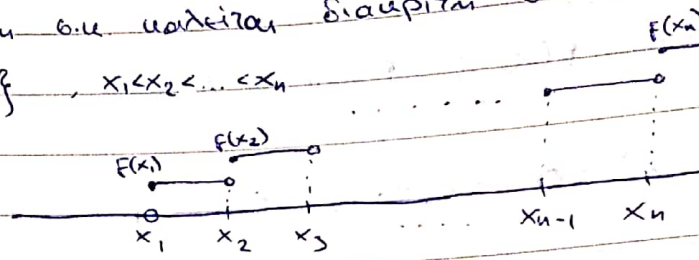 σ.κ. καλείται διακριτή
} , x₁<x₂<...<xₙ
F(xₙ)
F(x₁) F(x₂)
x₁ x₂ x₃ .... xₙ₋₁ xₙ